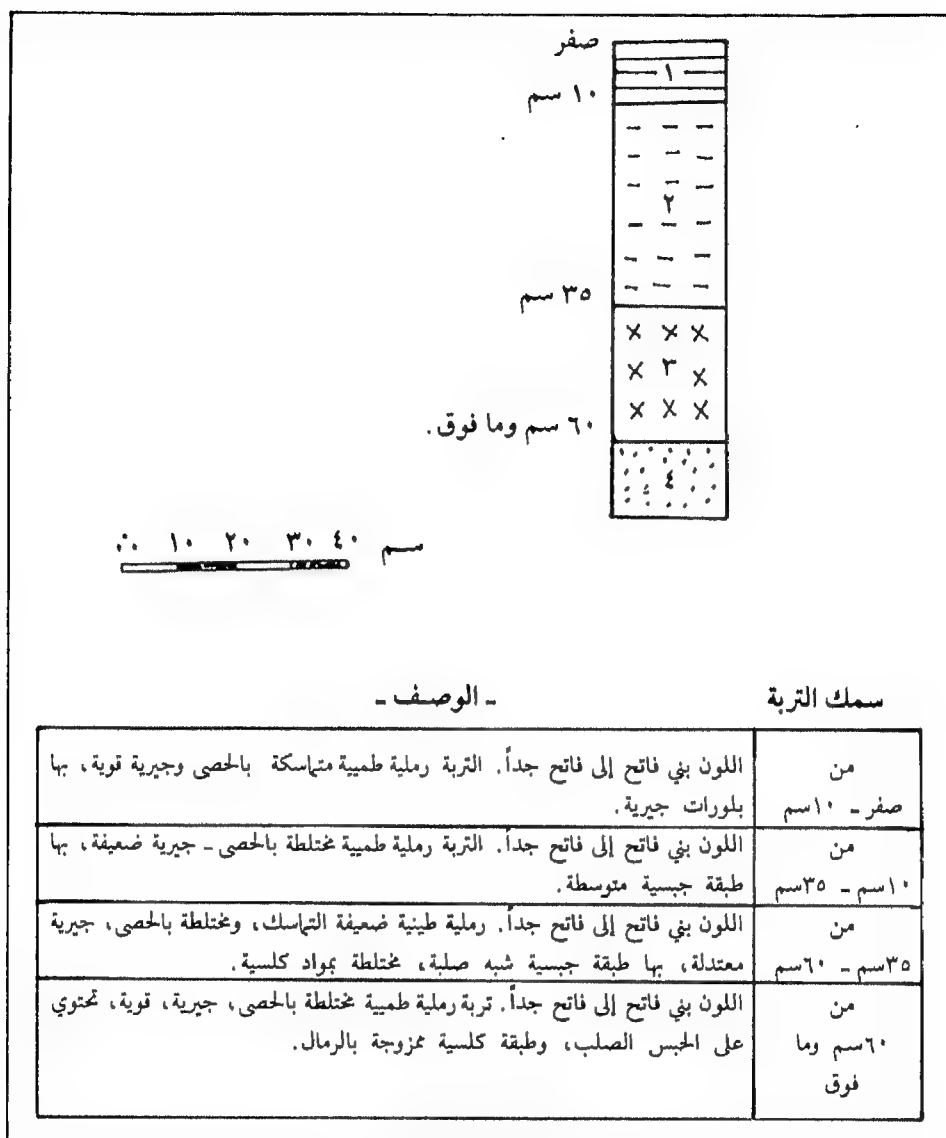 صفر
١
١٠ سم
٢
٣٥ سم
٣
٦٠ سم وما فوق.
٤
٠٠ ١٠ ٢٠ ٣٠ ٤٠ سم
سمك التربة - الوصف -
من
صفر - ١٠سم
اللون بني فاتح إلى فاتح جداً. التربة رملية طميية متماسكة بالحصى وجيرية قوية، بها
بلورات جيرية.
من
١٠سم - ٣٥سم
اللون بني فاتح إلى فاتح جداً. التربة رملية طميية مختلطة بالحصى - جيرية ضعيفة، بها
طبقة جبسية متوسطة.
من
٣٥سم - ٦٠سم
اللون بني فاتح إلى فاتح جداً. رملية طينية ضعيفة التماسك، ومختلطة بالحصى، جيرية
معتدلة، بها طبقة جبسية شبه صلبة، مختلطة بمواد كلسية.
من
٦٠سم وما
فوق
اللون بني فاتح إلى فاتح جداً. تربة رملية طميية مختلطة بالحصى، جيرية، قوية، تحتوي
على الجبس الصلب، وطبقة كلسية ممزوجة بالرمال.